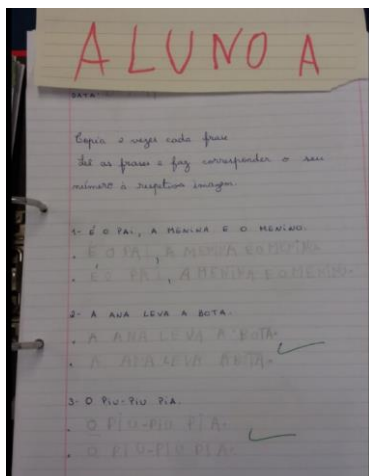 ALUNO A
DATA:
Copia 2 vezes cada frase
Lê as frases e faz corresponder o seu
número à respetiva imagem.
1- É O PAI, A MENINA E O MENINO.
. É O PAI, A MENINA E O MENINO.
. É O PAI, A MENINA E O MENINO.
2- A ANA LEVA A BOTA.
. A ANA LEVA A BOTA.
. A ANA LEVA A BOTA.
3- O PIU-PIU PIA.
. O PIU-PIU PIA.
. O PIU-PIU PIA.